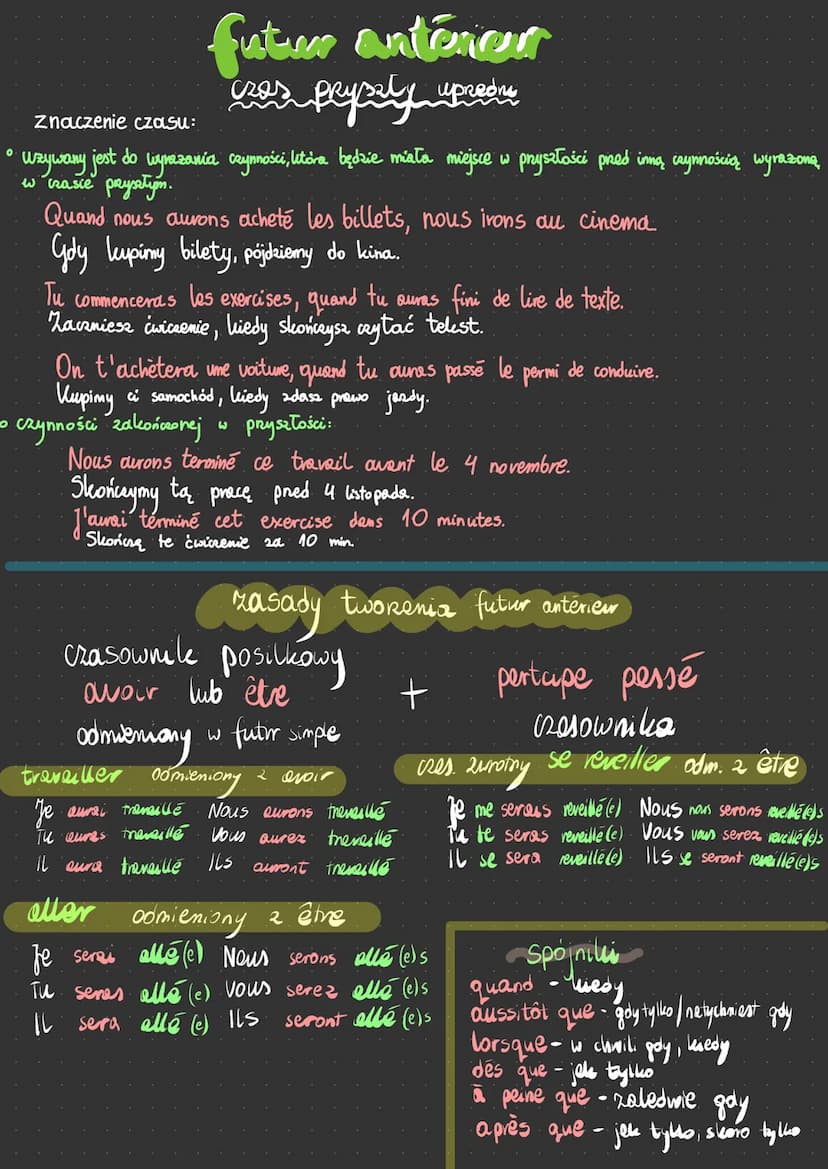 futur antérieur
czas pryszły uprzedni
znaczenie czasu:
° używany jest do wyrażania czynności, która będzie miała miejsce w pryszłości przed inną czynnością wyrażoną
w czasie pryszłym.
Quand nous aurons acheté les billets, nous irons au cinema
Gdy kupimy bilety, pójdziemy do kina.
Tu commenceras les exercises, quand tu auras fini de lire de texte.
Zaczniesz ćwiczenie, kiedy skończysz czytać tekst.
On t'achètera une voiture, quand tu auras passé le permi de conduire.
Kupimy ci samochód, kiedy zdasz prawo jazdy.
o czynności zakończonej w pryszłości:
Nous aurons terminé ce travail avant le 4 novembre.
Skończymy tą pracę pred 4 listopada.
J'aurai terminé cet exercise dans 10 minutes.
Skończę te ćwiczenie za 10 min.
zasady tworzenia futur antérieur
czasownik posiłkowy
avoir lub être
odmieniony w futur simple
+
partcipe passé
czasownika
travailler odmieniony z avoir
Je aurai travaillé Nous aurons travaillé
Tu auras travaillé Vous aurez travaillé
il aura travaillé ils auront travaillé
czas. zwrotny se reveiller odm. z être
Je me serais reveillé(e) Nous nous serons reveillé(e)s
Tu te seras reveillé(e) Vous vous serez reveillé(e)s
il se sera reveillé(e) ils se seront reveillé(e)s
aller odmieniony z être
Je serai allé(e) Nous serons allé(e)s
Tu seras allé(e) Vous serez allé(e)s
il sera allé(e) ils seront allé(e)s
spójniki
quand - kiedy
aussitôt que - gdy tylko/natychmiast gdy
lorsque - w chwili gdy, kiedy
dés que - jak tylko
à peine que - zaledwie gdy
après que - jak tylko, skoro tylko